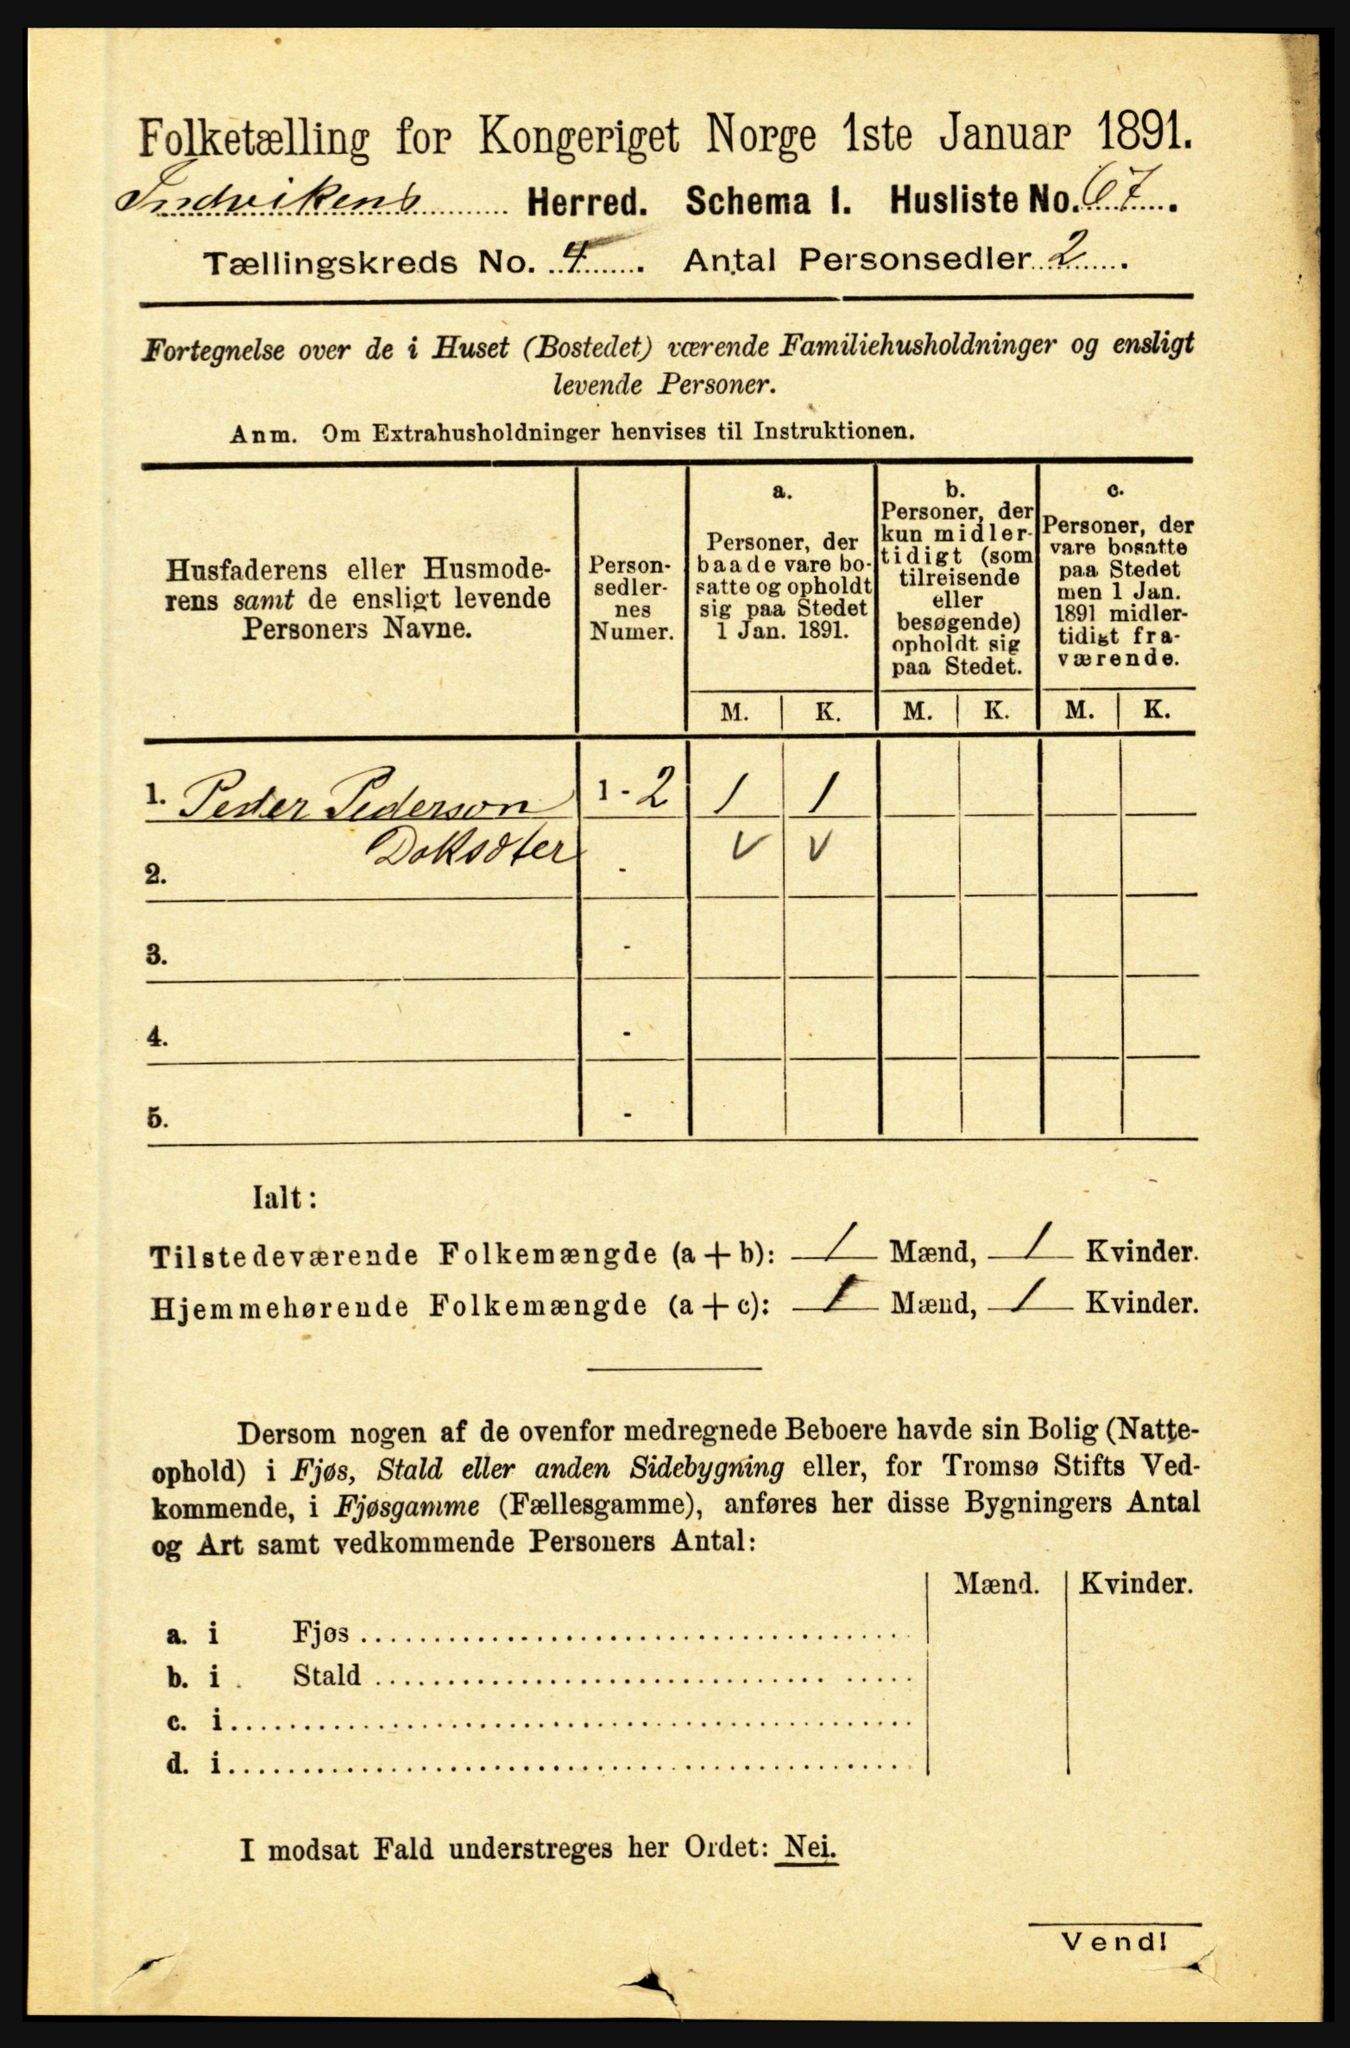 Folketælling for Kongeriget Norge 1ste Januar 1891.
Indvikens Herred. Schema I. Husliste No. 67.
Tællingskreds No. 4. Antal Personsedler 2.
Fortegnelse over de i Huset (Bostedet) værende Familiehusholdninger og ensligt
levende Personer.
Anm. Om Extrahusholdninger henvises til Instruktionen.
Husfaderens eller Husmode-
rens samt de ensligt levende
Personers Navne.
Person-
sedler-
nes
Numer.
a.
Personer, der
baade vare bo-
satte og opholdt
sig paa Stedet
1 Jan. 1891.
b.
Personer, der
kun midler-
tidigt (som
tilreisende
eller
besøgende)
opholdt sig
paa Stedet.
c.
Personer, der
vare bosatte
paa Stedet
men 1 Jan.
1891 midler-
tidigt fra-
værende.
M. K. M. K. M. K.
1. Peder Pederson 1 - 2 1 1
Doksæter V V
2. -
3. -
4. -
5. -
Ialt:
Tilstedeværende Folkemængde (a + b): 1 Mænd, 1 Kvinder.
Hjemmehørende Folkemængde (a + c): 1 Mænd, 1 Kvinder.
Dersom nogen af de ovenfor medregnede Beboere havde sin Bolig (Natte-
ophold) i Fjøs, Stald eller anden Sidebygning eller, for Tromsø Stifts Ved-
kommende, i Fjøsgamme (Fællesgamme), anføres her disse Bygningers Antal
og Art samt vedkommende Personers Antal:
Mænd. Kvinder.
a. i Fjøs
b. i Stald
c. i
d. i
I modsat Fald understreges her Ordet: Nei.
Vend!